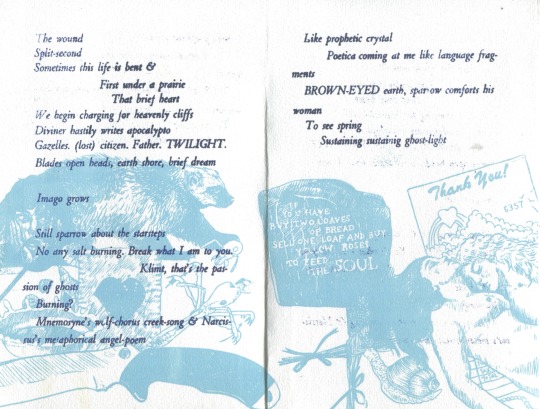 The wound
Split-second
Sometimes this life is bent &
First under a prairie
That brief heart
We begin charging for heavenly cliffs
Diviner hastily writes apocalypto
Gazelles. (lost) citizen. Father. TWILIGHT.
Blades open heads, earth shore, brief dream
Imago grows
Still sparrow about the starsteps
No any salt burning. Break what I am to you.
Klimt, that's the pas-
sion of ghosts
Burning?
Mnemosyne's wolf-chorus creek-song & Narcis-
sus's metaphorical angel-poem
Like prophetic crystal
Poetica coming at me like language frag-
ments
BROWN-EYED earth, sparrow comforts his
woman
To see spring
Sustaining sustainig ghost-light
IF
YOU HAVE
TWO LOAVES
OF BREAD
SELL ONE LOAF AND BUY
ROSES
TO FEED
THE SOUL
Thank You!